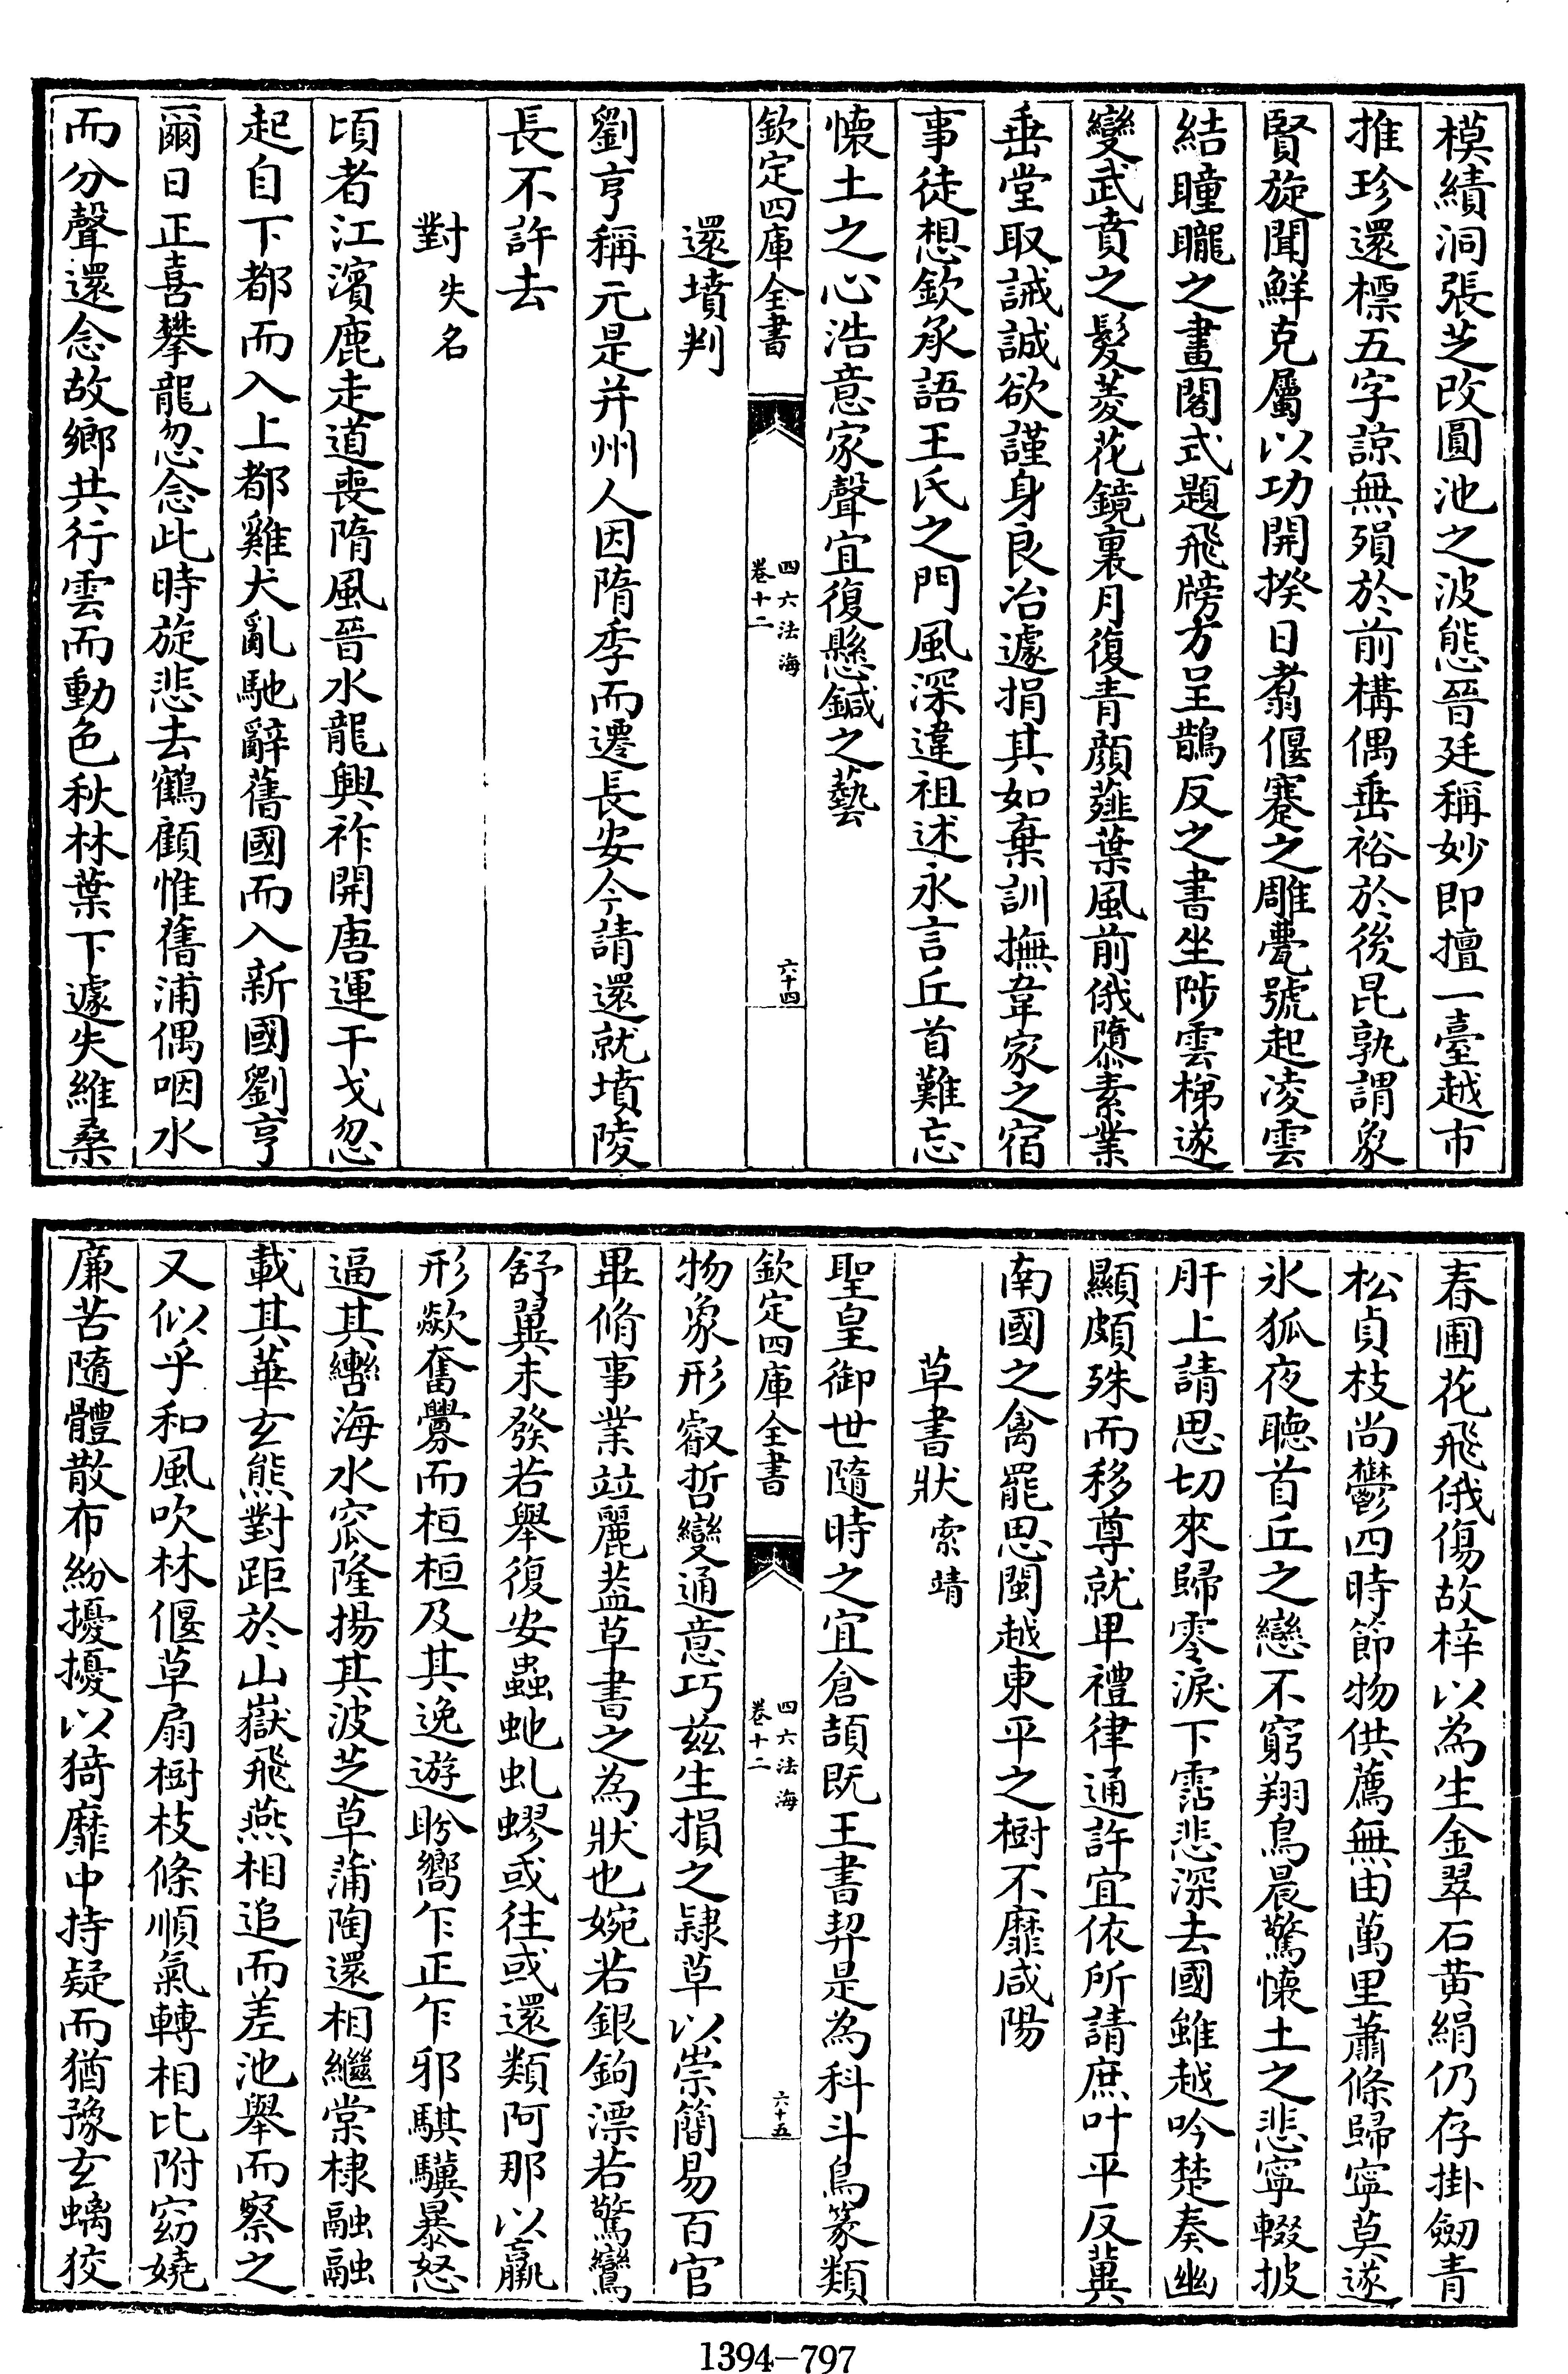 模績洞張芝改圓池之波態晉廷稱妙即擅一臺越市
推珍還標五字諒無殞於前構偶垂裕於後昆孰謂象
賢旋聞鮮克屬以功開揆日翥偃蹇之雕甍號起凌雲
結曈曨之畫閣式題飛牓方呈鵲反之書坐陟雲梯遂
變武賁之髮菱花鏡裏月復青顔薤葉風前俄隳素業
垂堂取誡誠欲謹身良冶遽捐其如棄訓撫韋家之宿
事徒想欽承語王氏之門風深違祖述永言丘首難忘
懐土之心浩意家聲宜復懸鍼之藝
欽定四庫全書
四六法海
卷十二
六十四
還墳判
劉亨稱元是并州人因隋季而遷長安今請還就墳陵
長不許去
對 失名
頃者江濱鹿走道喪隋風晉水龍興祚開唐運干戈忽
起自下都而入上都雞犬亂馳辭舊國而入新國劉亨
爾日正喜攀龍忽念此時旋悲去鶴顧惟舊浦偶咽水
而分聲還念故鄉共行雲而動色秋林葉下遽失維桑
春圃花飛俄傷故梓以為生金翠石黄絹仍存掛劒青
松貞枝尚鬱四時節物供薦無由萬里蕭條歸寧莫遂
氷狐夜聽首丘之戀不窮翔鳥晨驚懐土之悲寧輟披
肝上請思切來歸零淚下霑悲深去國雖越吟楚奏幽
顯頗殊而移尊就卑禮律通許宜依所請庶叶平反冀
南國之禽罷思閩越東平之樹不靡咸陽
草書狀 索靖
聖皇御世隨時之宜倉頡既王書契是為科斗鳥篆類
欽定四庫全書
四六法海
卷十二
六十五
物象形叡哲變通意巧兹生損之隷草以崇簡易百官
畢脩事業竝麗葢草書之為狀也婉若銀鉤漂若驚鸞
舒翼未發若舉復安蟲虵虬蟉或往或還類阿那以羸
形歘奮釁而桓桓及其逸遊盻嚮乍正乍邪騏驥暴怒
逼其轡海水窊隆揚其波芝草蒲陶還相繼棠棣融融
載其華玄熊對距於山嶽飛燕相追而差池舉而察之
又似乎和風吹林偃草扇樹枝條順氣轉相比附窈嬈
廉苦隨體散布紛擾擾以猗靡中持疑而猶豫玄螭狡
1394-797